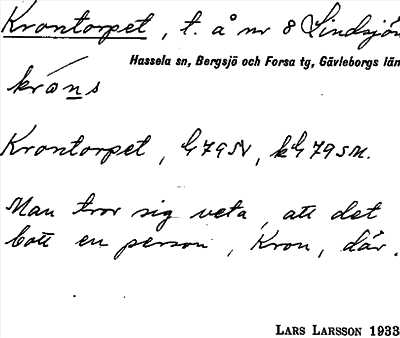 Krontorpet, t. å nr 8 Lindsjön
Hassela sn, Bergsjö och Forsa tg, Gävleborgs län
króns
Krontorpet, G79SV, kG79SM.
Man tror sig veta, att det
bott en person, Kron, där.
LARS LARSSON 1933